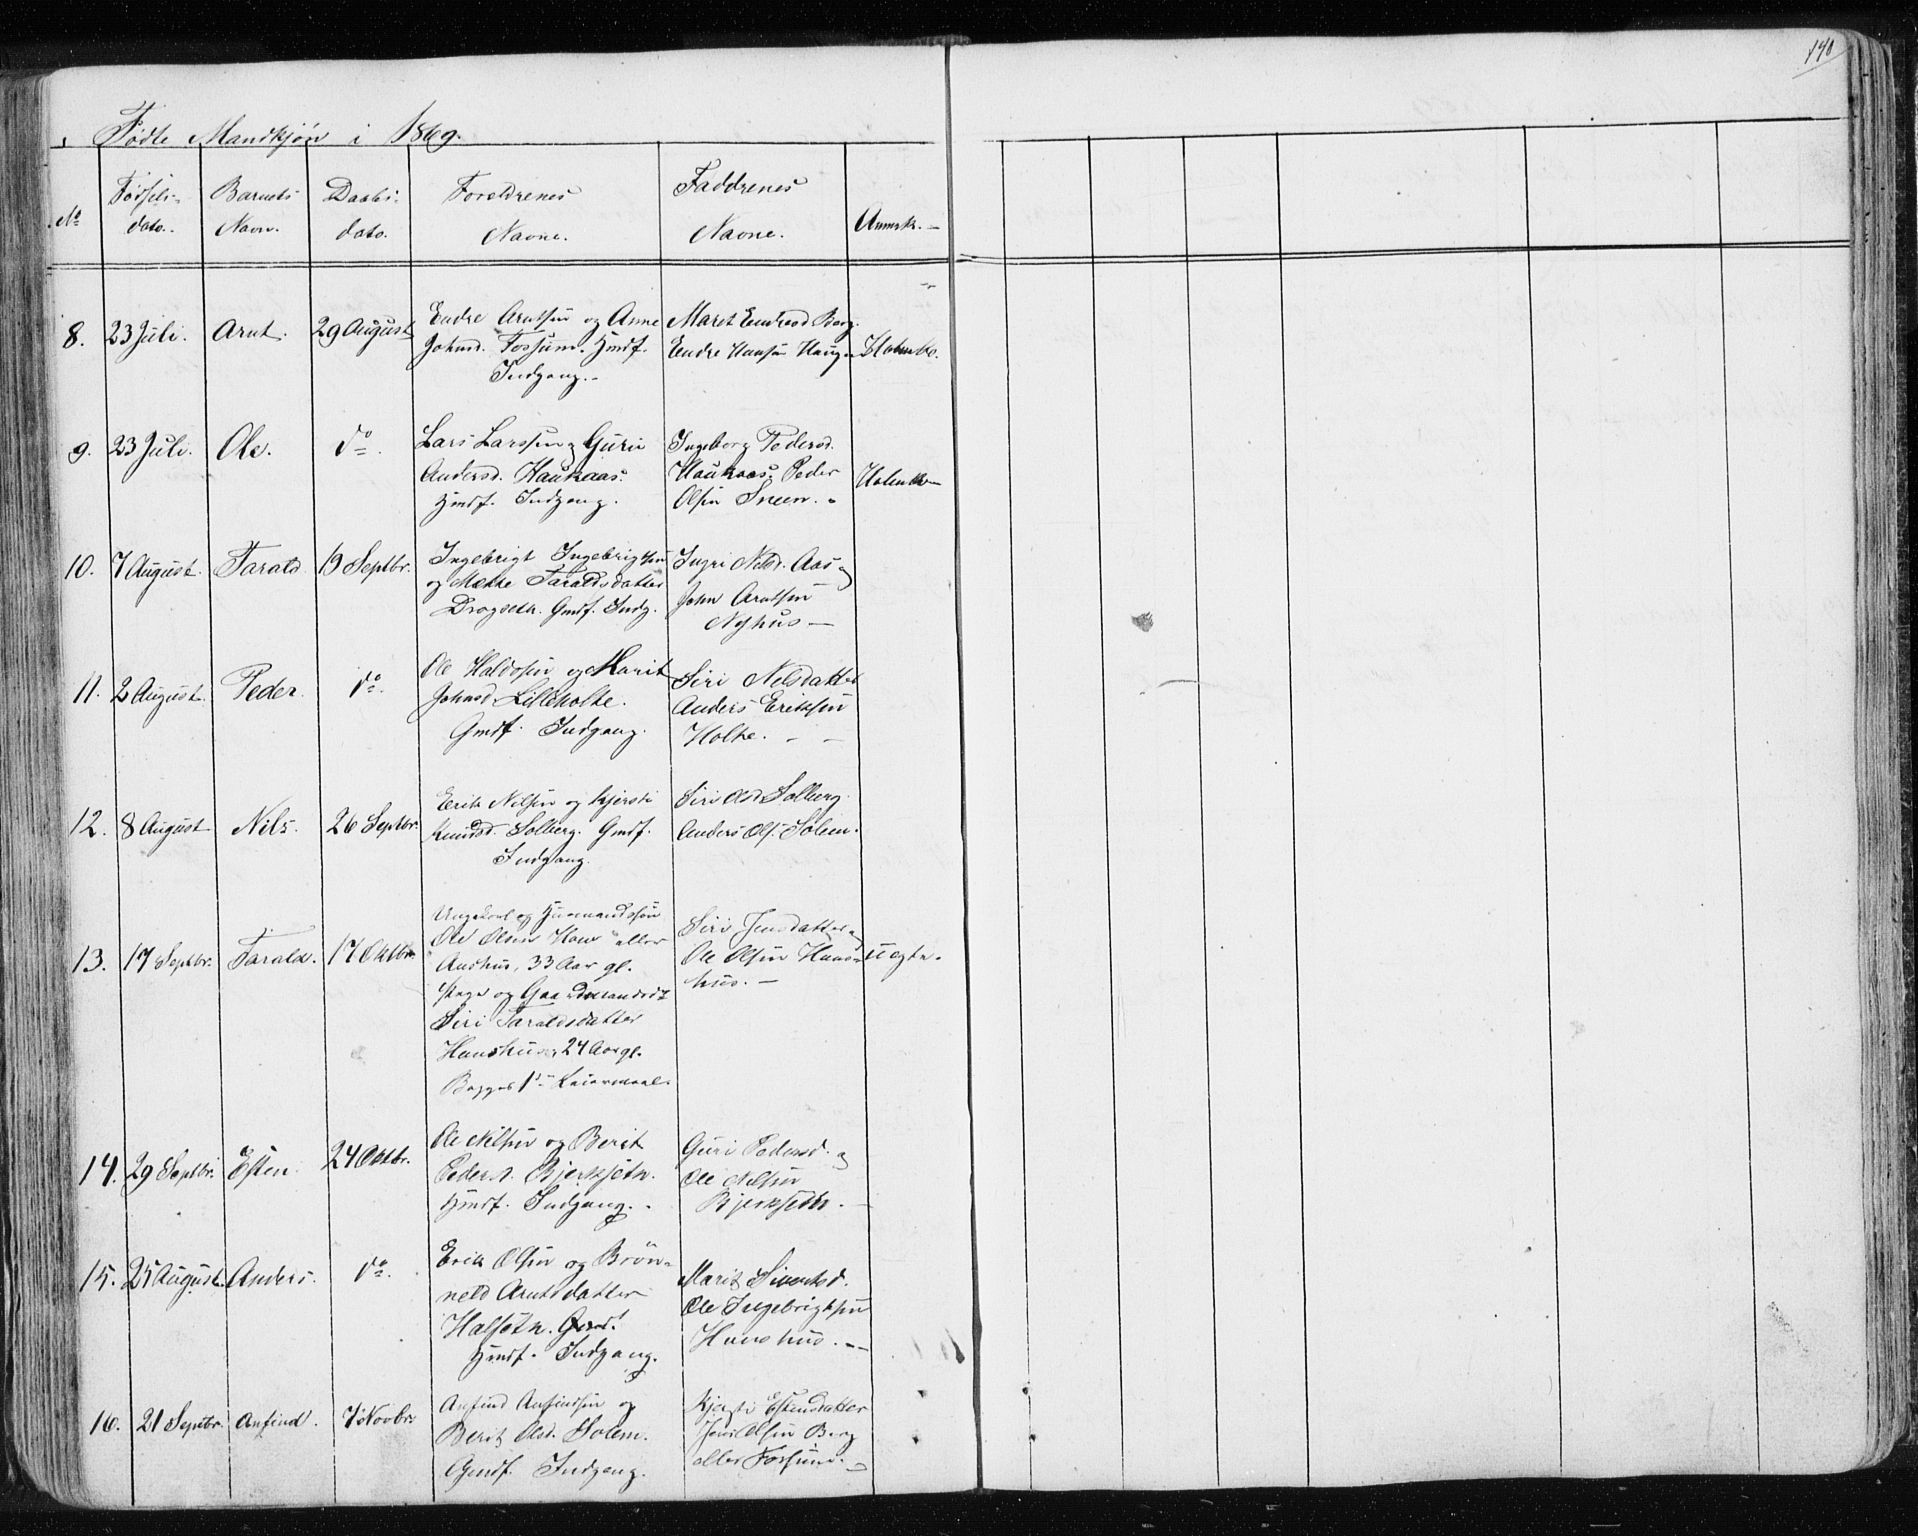 140
Fødte Mandkjøn i 1869.
No Fødsels- dato. Barnets Navn. Daabs- dato. Foreldrenes Navne. Faddrenes Navne. Anmrk.
8. 23 Juli. Arnt. 29 August
Endre Arntsen og Anne
Johnsd. Fossum. Hmdf.
Indgang.
Maret Endresd Berg.
Endre Hansen Haugen
9. 23 Juli. Ole. do.
Lars Larssen og Guru
Andersd. Haukaas.
Hmdf. Indgang.
Ingeborg Pedersd.
Haukaas, Peder
Olsen Sneen.
10. 7 August. Tarald 19 Septbr.
Ingebrigt Ingebrigtsen
og Mekke Taraldsdatter
Drogseth. Gmdf. Indg.
Ingri Nilsd. Aas og
John Arntsen
Nyhus
11. 2 August. Peder. do.
Ole Haldosen og Marit
Johnsd. Lilleholte.
Gmdf. Indgang.
Siri Nilsdatter
Anders Eriksen
Holte.
12. 8 August Nils. 26 Septbr.
Erik Nilsen og Kjersti
Knudsd. Solberg. Gmdf.
Indgang.
Siri Olsd Solberg.
Anders Ols. Solem.
13. 17 Septbr. Tarald. 17 Oktbr.
Ungkarl og Husmandssøn
Ole Olsen Hov eller
Aashus, 33 Aar gl.
Pige og Gaardmandsdt
Siri Taraldsdatter
Hanshus, 24 Aar gl.
Begges 1ste Leiermaal.
Siri Jensdatter og
Ole Olsen Hans-
hus.
uegte.
14. 29 Septbr. Esten. 24 Oktbr.
Ole Nilsen og Berit
Pedersd. Bjerkseth.
Hmdf. Indgang.
Guri Pedersd. og
Ole Nilsen
Bjerkseth.
15. 25 August. Anders. do.
Erik Olsen og Brøn-
neld Arntsdatter
Halseth.
Hmdf. Indgang.
Marit Sivertsd.
Ole Ingebrigtsen
Hanshus.
16. 21 Septbr. Anfind. 7 Novbr.
Anfind Anfindsen og
Berit Olsd. Solem.
Gmdf. Indgang.
Kjersti Estensdatter
Jens Olsen Berg
eller Fossum.